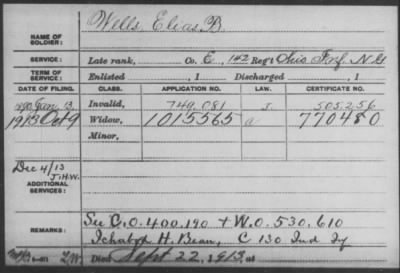 NAME OF SOLDIER: Wells, Elias, B.
SERVICE: Late rank, Co. E, 142 Reg't Ohio Inf. N.G
TERM OF SERVICE: Enlisted , 1 Discharged , 1
DATE OF FILING. CLASS. APPLICATION NO. LAW. CERTIFICATE NO.
1890 Jan. 13, Invalid, 749.081 505.256
1913 Oct 9 Widow, 1015565 a 770480
Minor,
Dec 4/13
J.H.W.
ADDITIONAL SERVICES:
REMARKS: See C.O. 400,190 + W.O. 530,610
H. Bean, C 130 Ind Iy
Died Sept 22, 1913, at